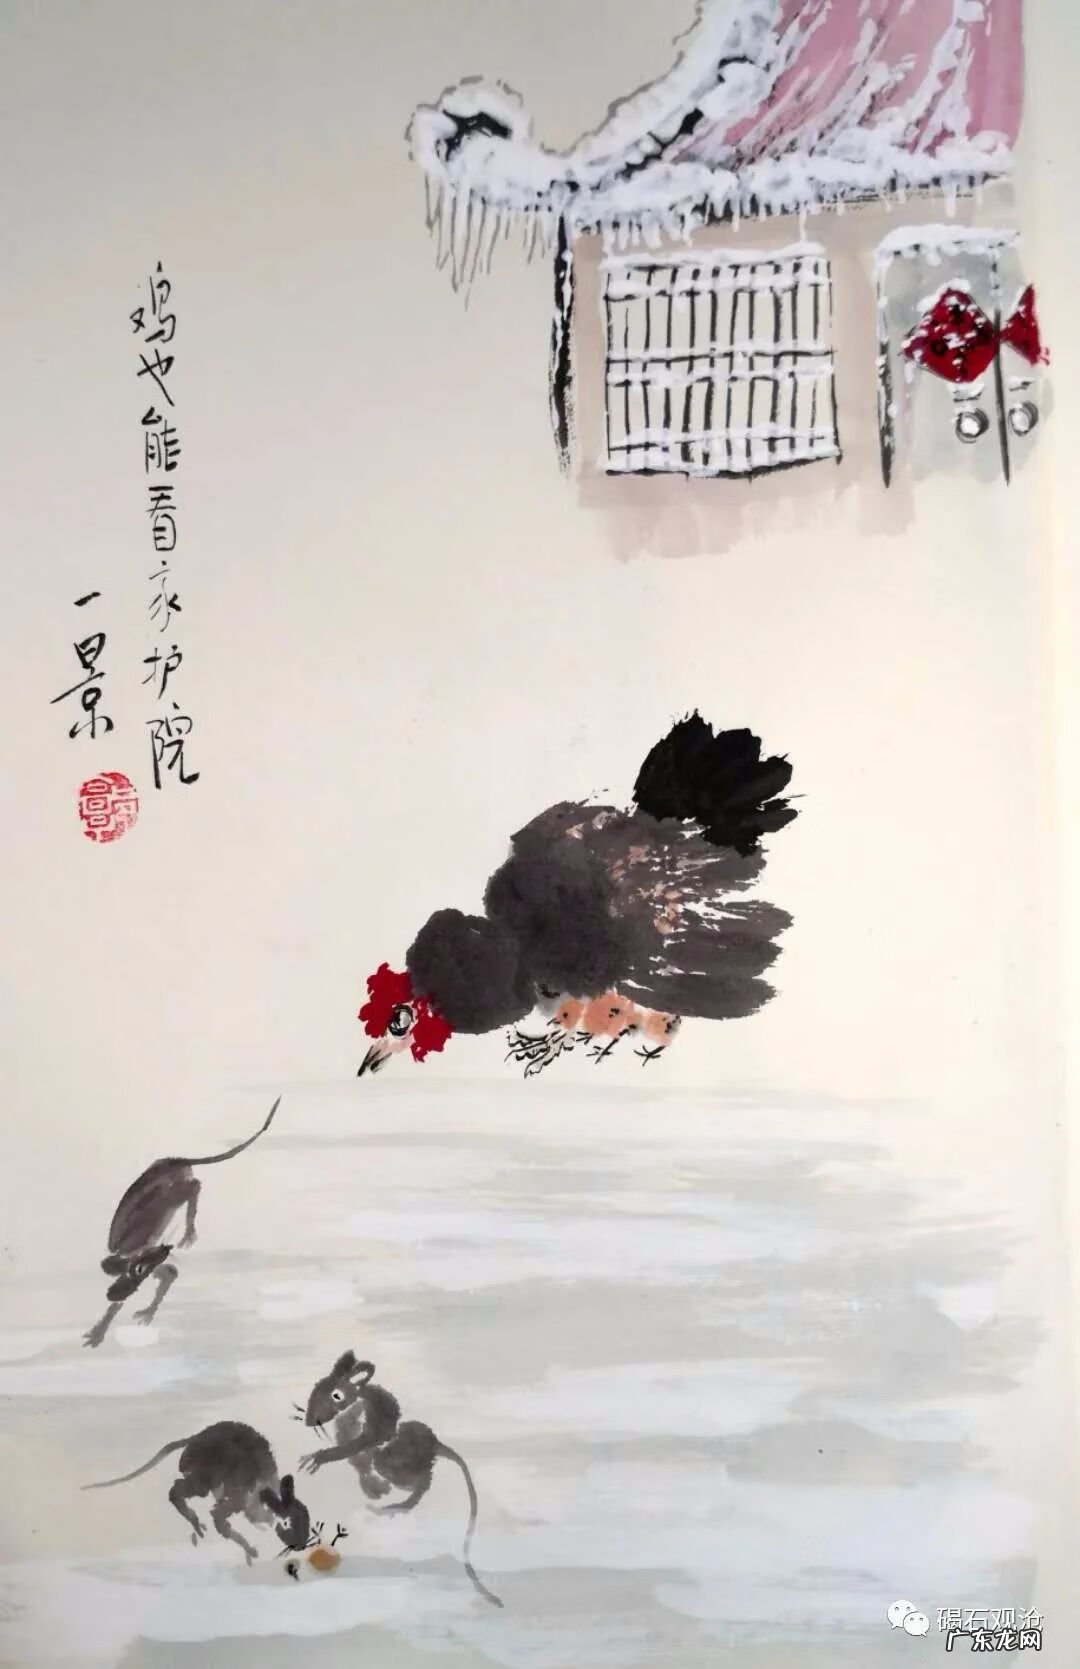 鸡也能看家护院
一景
碣石观沧
广东龙网